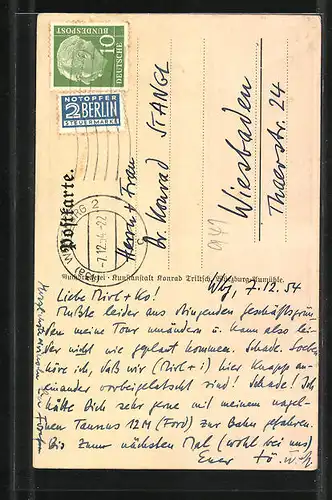 10
DEUTSCHE
BUNDESPOST
NOTOPFER
2 BERLIN
STEUERMARKE
Postkarte.
WÜRZBURG 2
-7.12.54-22
Herrn + Frau
Dr. Konrad STANGL
Wiesbaden
Thaerstr. 24
Buchdruckerei - Kunstanstalt Konrad Triltsch, Würzburg-Aumühle.
Wbg, 7.12.54
Liebe Mirl + Ko!
Mußte leider aus dringenden Geschäftsgrün-
den meine Tour umändern u. kann also lei-
der nicht wie geplant kommen. Schade. Soeben
höre ich, daß wir (Mirl + i) hier knapp an-
einander vorbeigeflutscht sind! Schade! Ich
hätte Dich sehr gerne mit meinem nagel-
neuen Taunus 12M (Ford) zur Bahn gefahren.
Bis zum nächsten Mal (wohl bei uns)
Euer